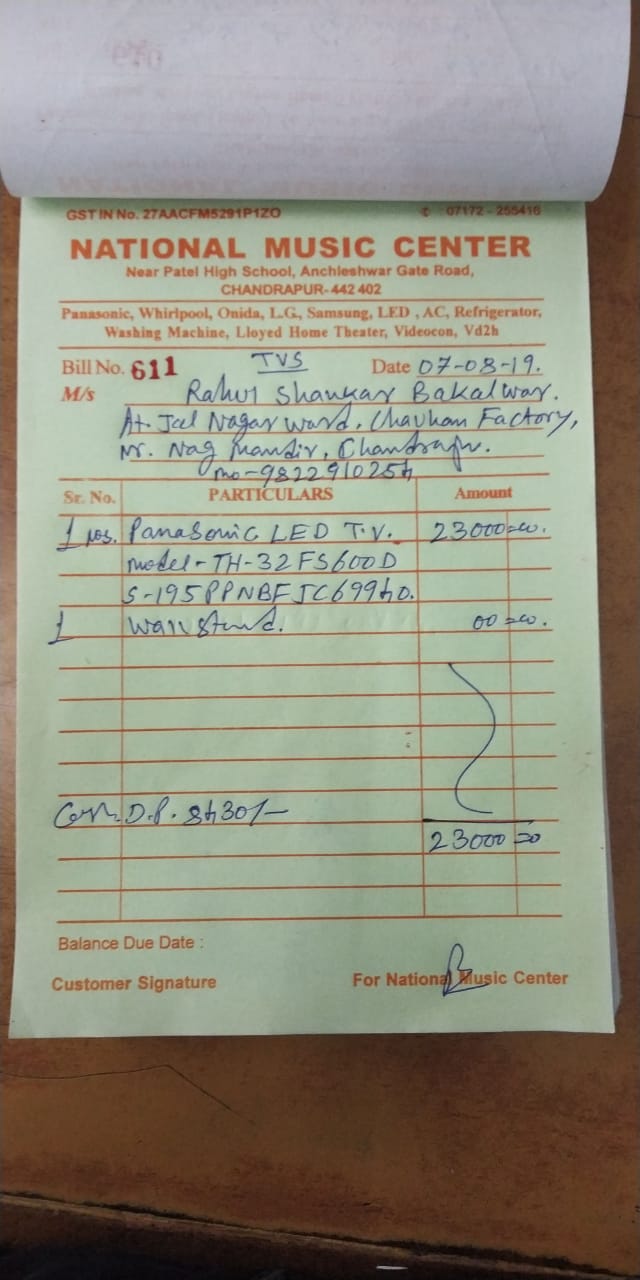 GST IN No. 27AACFM5291P1ZO ✆ : 07172 - 255416
NATIONAL MUSIC CENTER
Near Patel High School, Anchleshwar Gate Road,
CHANDRAPUR- 442 402
Panasonic, Whirlpool, Onida, L.G., Samsung, LED , AC, Refrigerator,
Washing Machine, Lloyed Home Theater, Videocon, Vd2h
Bill No. 611 TVS Date 07-08-19.
M/s Rahul Shankar Bakalwar.
At. Jal Nagar ward, Chauhan Factory,
Nr. Nag Mandir, Chandrapur.
mo-9822910254
Sr. No. PARTICULARS Amount
1 Panasonic LED T.V. 23000=00.
model- TH-32FS600D
S-195PPNBFJC69940.
1 wall stand. 00=00.
D.P. 8430/-
23000=00
Balance Due Date :
Customer Signature For National Music Center